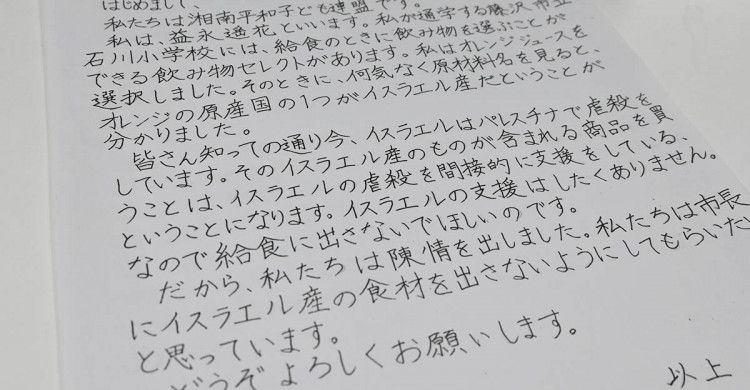 はじめまして、
私たちは湘南平和子ども連盟です。
私は、益永遥花といいます。私が通学する藤沢市立
石川小学校には、給食のときに飲み物を選ぶことが
できる飲み物セレクトがあります。私はオレンジジュースを
選択しました。そのときに、何気なく原材料名を見ると、
オレンジの原産国の1つがイスラエル産だということが
分かりました。
皆さん知っての通り今、イスラエルはパレスチナで虐殺を
しています。そのイスラエル産のものが含まれる商品を買
うことは、イスラエルの虐殺を間接的に支援をしている、
ということになります。イスラエルの支援はしたくありません。
なので給食に出さないでほしいのです。
だから、私たちは陳情を出しました。私たちは市長
にイスラエル産の食材を出さないようにしてもらいた
と思っています。
どうぞよろしくお願いします。
以上